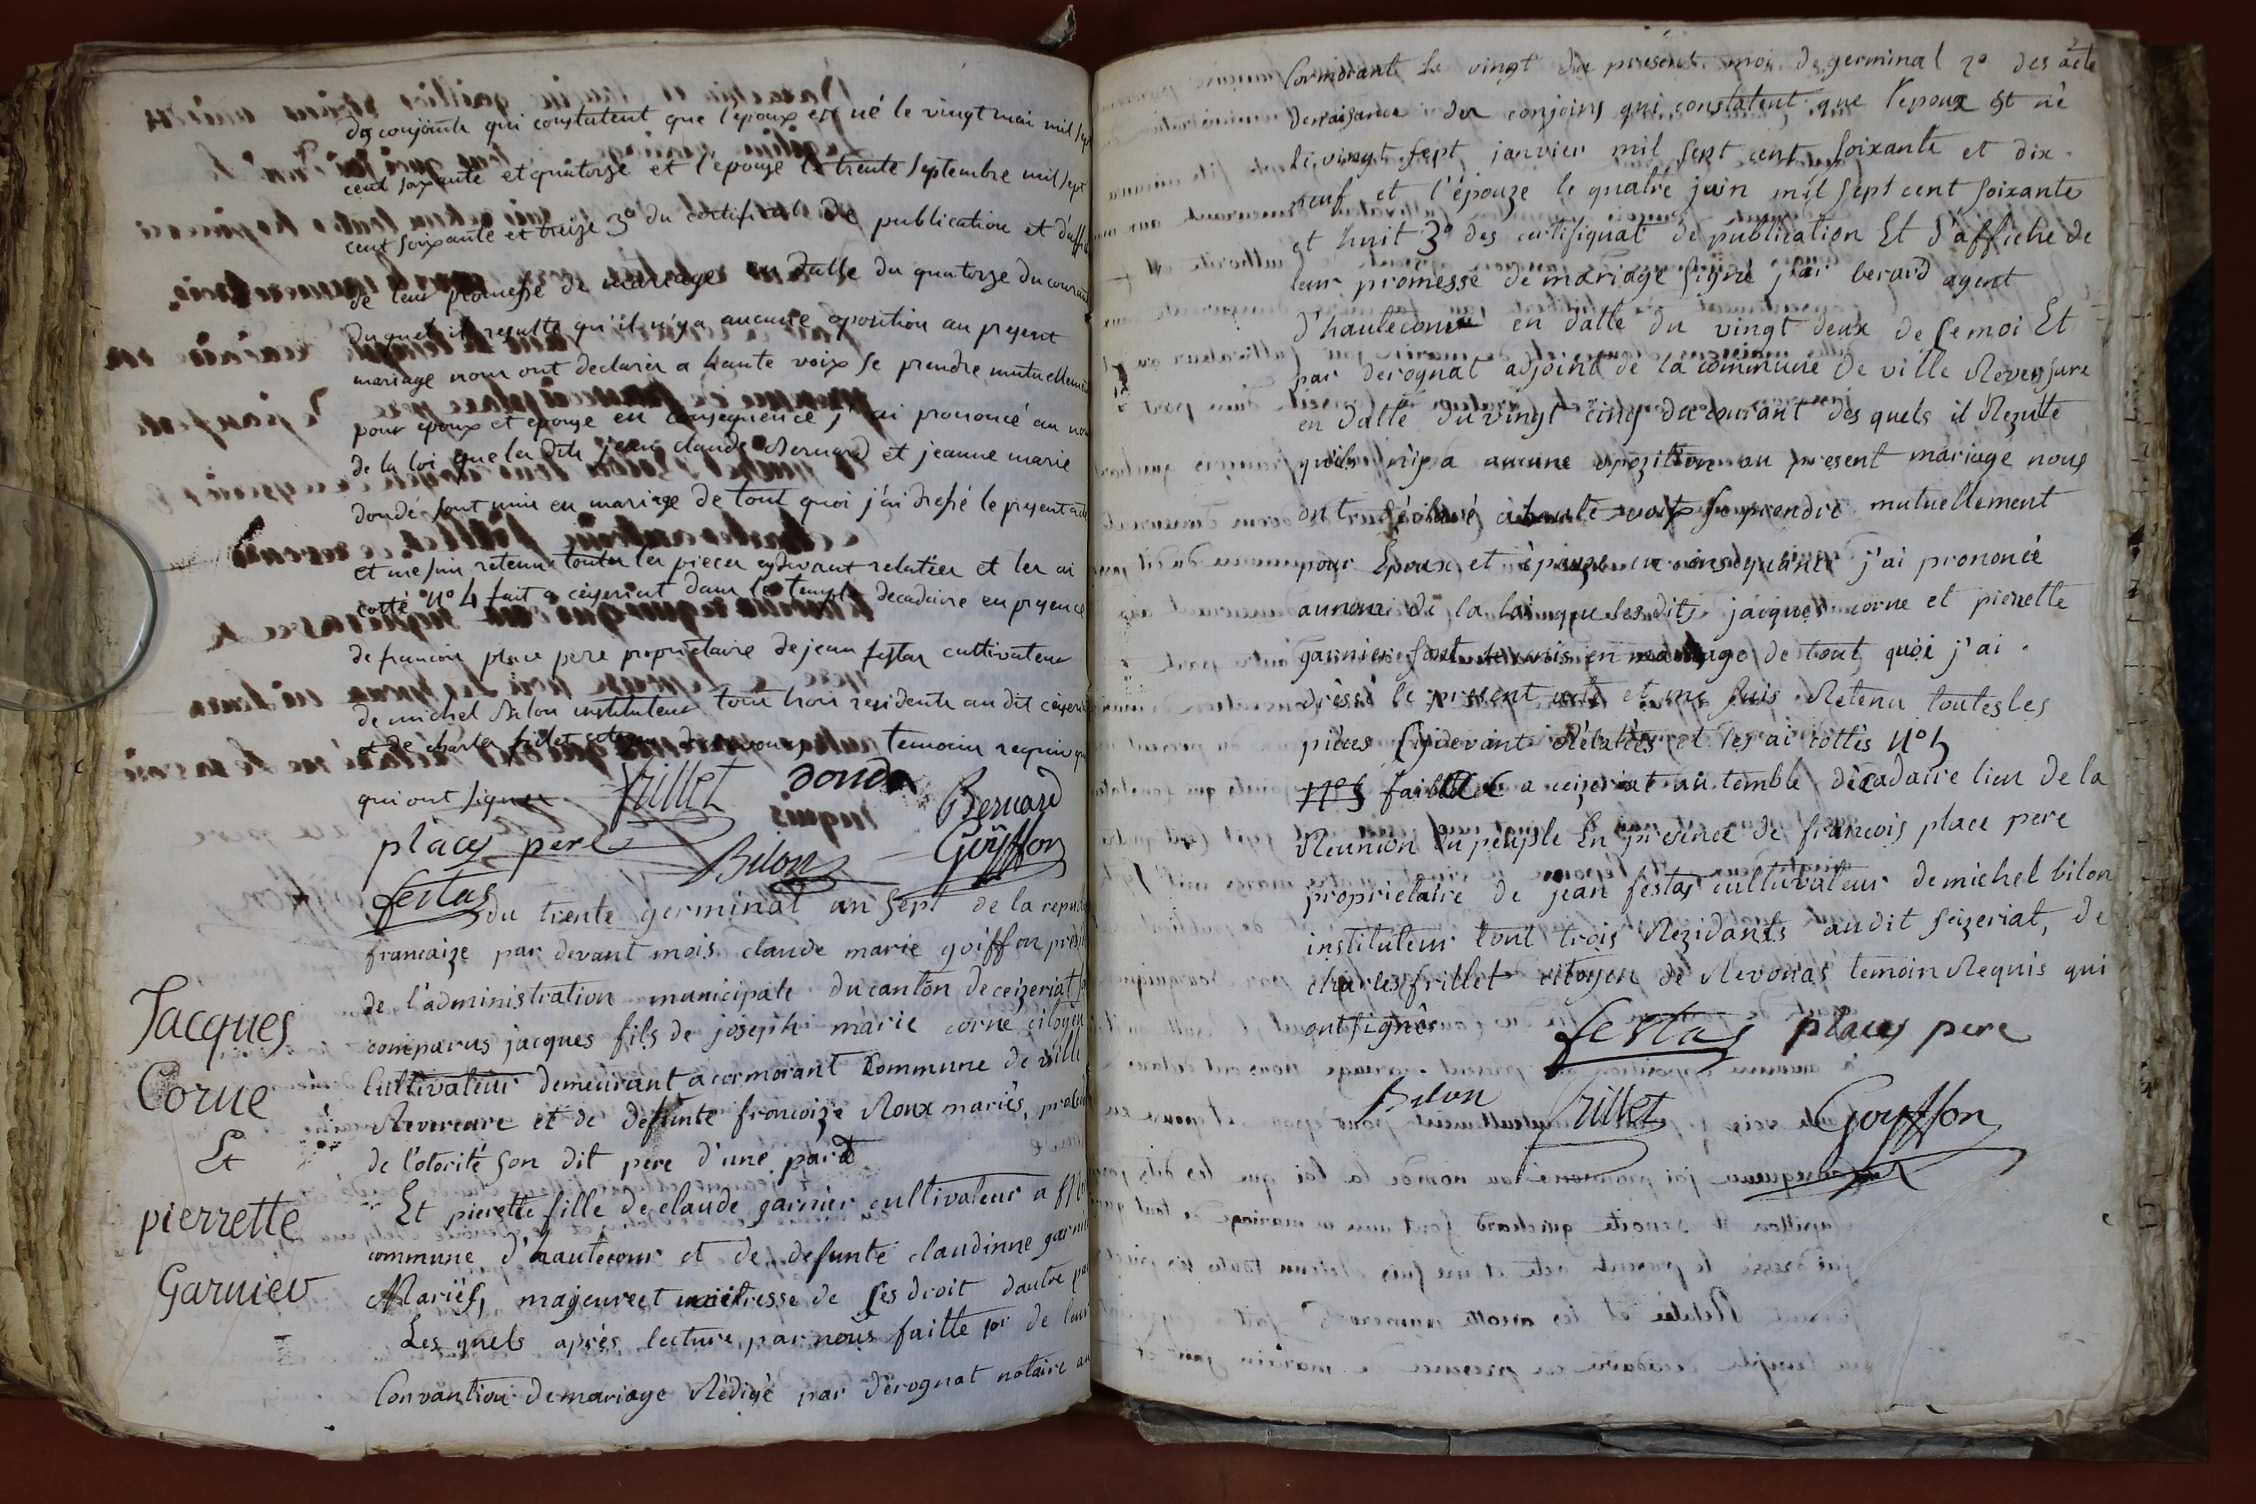 des conjoints qui constatent que l'epoux est né le vingt mai mil sept
cent soixante et quatorze et l'epouze le trente septembre mil sept
cent soixante et treize 3° du certificat de publication et d'affi
de leur promesse de mariage en datte du quatorze du courant
duquel il resulte qu'il n'y a aucune oposition au present
mariage nous ont declarer a haute voix se prendre mutuellement
pour epoux et epouze en consequence j'ai prononcé au nom
de la loi que les dits jean claude Bernard et jeanne marie
doudé sont unis en mariage de tout quoi j'ai dressé le present acte
et me suis retenu toutes les pieces cydevant relatées et les ai
cotté N° 4 fait a ceyzeriat dans le temple decadaire en presence
de francois place pere proprietaire de jean festas cultivateur
de michel Bilon instituteur tous trois residents au dit ceyzeriat
et de charles frillet citoyen de revonas temoins requis qui
qui ont signer frillet doudé Bernard
places pere Bilon Goÿffon
festas
du trente germinal an sept de la repub
francaize par devant mois claude marie goiffon présid
de l'administration municipale du canton de ceizeriat
comparus jacques fils de joseph marie corne citoyen
Cultivateur demeurant a cormorant Commune de ville
Revereure et de defunte francoize Roux mariés,
de l'otorité son dit pere d'une part
Jacques
Corne
Et
pierrette
Garnier
Et pierette fille de claude garnier cultivateur a
commune d'hautecour et de defunte claudinne garni
Mariés, majeure et maitresse de ses droit d'autre pa
Les quels après lecture par nous faitte 1° de leur
Convantion de mariage Rédigé par dérognat notaire au
Cormorant le vingt du présent moi de germinal 2° des acte
de naisance des conjoins qui constatent que l'epoux est né
le vingt sept janvier mil sept cent soixante et dix
neuf et l'épouze le quatre juin mil sept cent soixante
et huit 3° des certifiquat de publication Et d'affiche de
leur promesse de mariage signé j'ai berard agent
d'hautecour en datte du vingt deux de ce moi Et
par derognat adjoint de la commune de ville Reversure
en datte du vingt cinq du courant des quels il Rezulte
qu'ils n'ip a aucune opozition au present mariage nous
ont déclaré a haute voix se prendre mutuellement
pour Epoux et épouze en consequence j'ai prononcé
au nom de la loi que les dits jacques corne et pierette
garnier sont unis en mariage de tout quoi j'ai
dressé le present acte et me suis Retenu toutes les
pièces Cydevant Rélatées et les ai cottés N° 5
N° 5 fait a ceizeriat au temble décadaire lieu de la
Reunion du peuple En presence de francois place pere
proprietaire de jean festas cultuvateur de michel bilon
instituteur tout trois Rezidants audit seizeriat, de
charles frillet citoyen de Revonas temoin Requis qui
ont signés festas places pere
Bilon frillet Goyffon